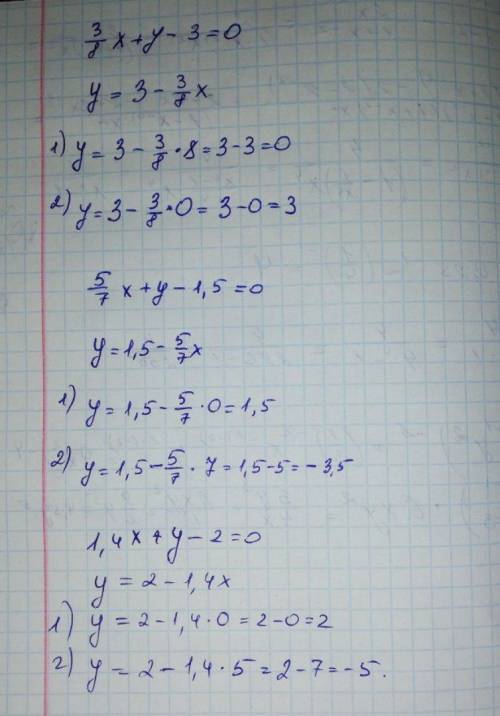 3/8 x + y - 3 = 0
y = 3 - 3/8 x
1) y = 3 - 3/8 · 8 = 3 - 3 = 0
2) y = 3 - 3/8 · 0 = 3 - 0 = 3
5/7 x + y - 1,5 = 0
y = 1,5 - 5/7 x
1) y = 1,5 - 5/7 · 0 = 1,5
2) y = 1,5 - 5/7 · 7 = 1,5 - 5 = - 3,5
1,4x + y - 2 = 0
y = 2 - 1,4x
1) y = 2 - 1,4 · 0 = 2 - 0 = 2
2) y = 2 - 1,4 · 5 = 2 - 7 = - 5.